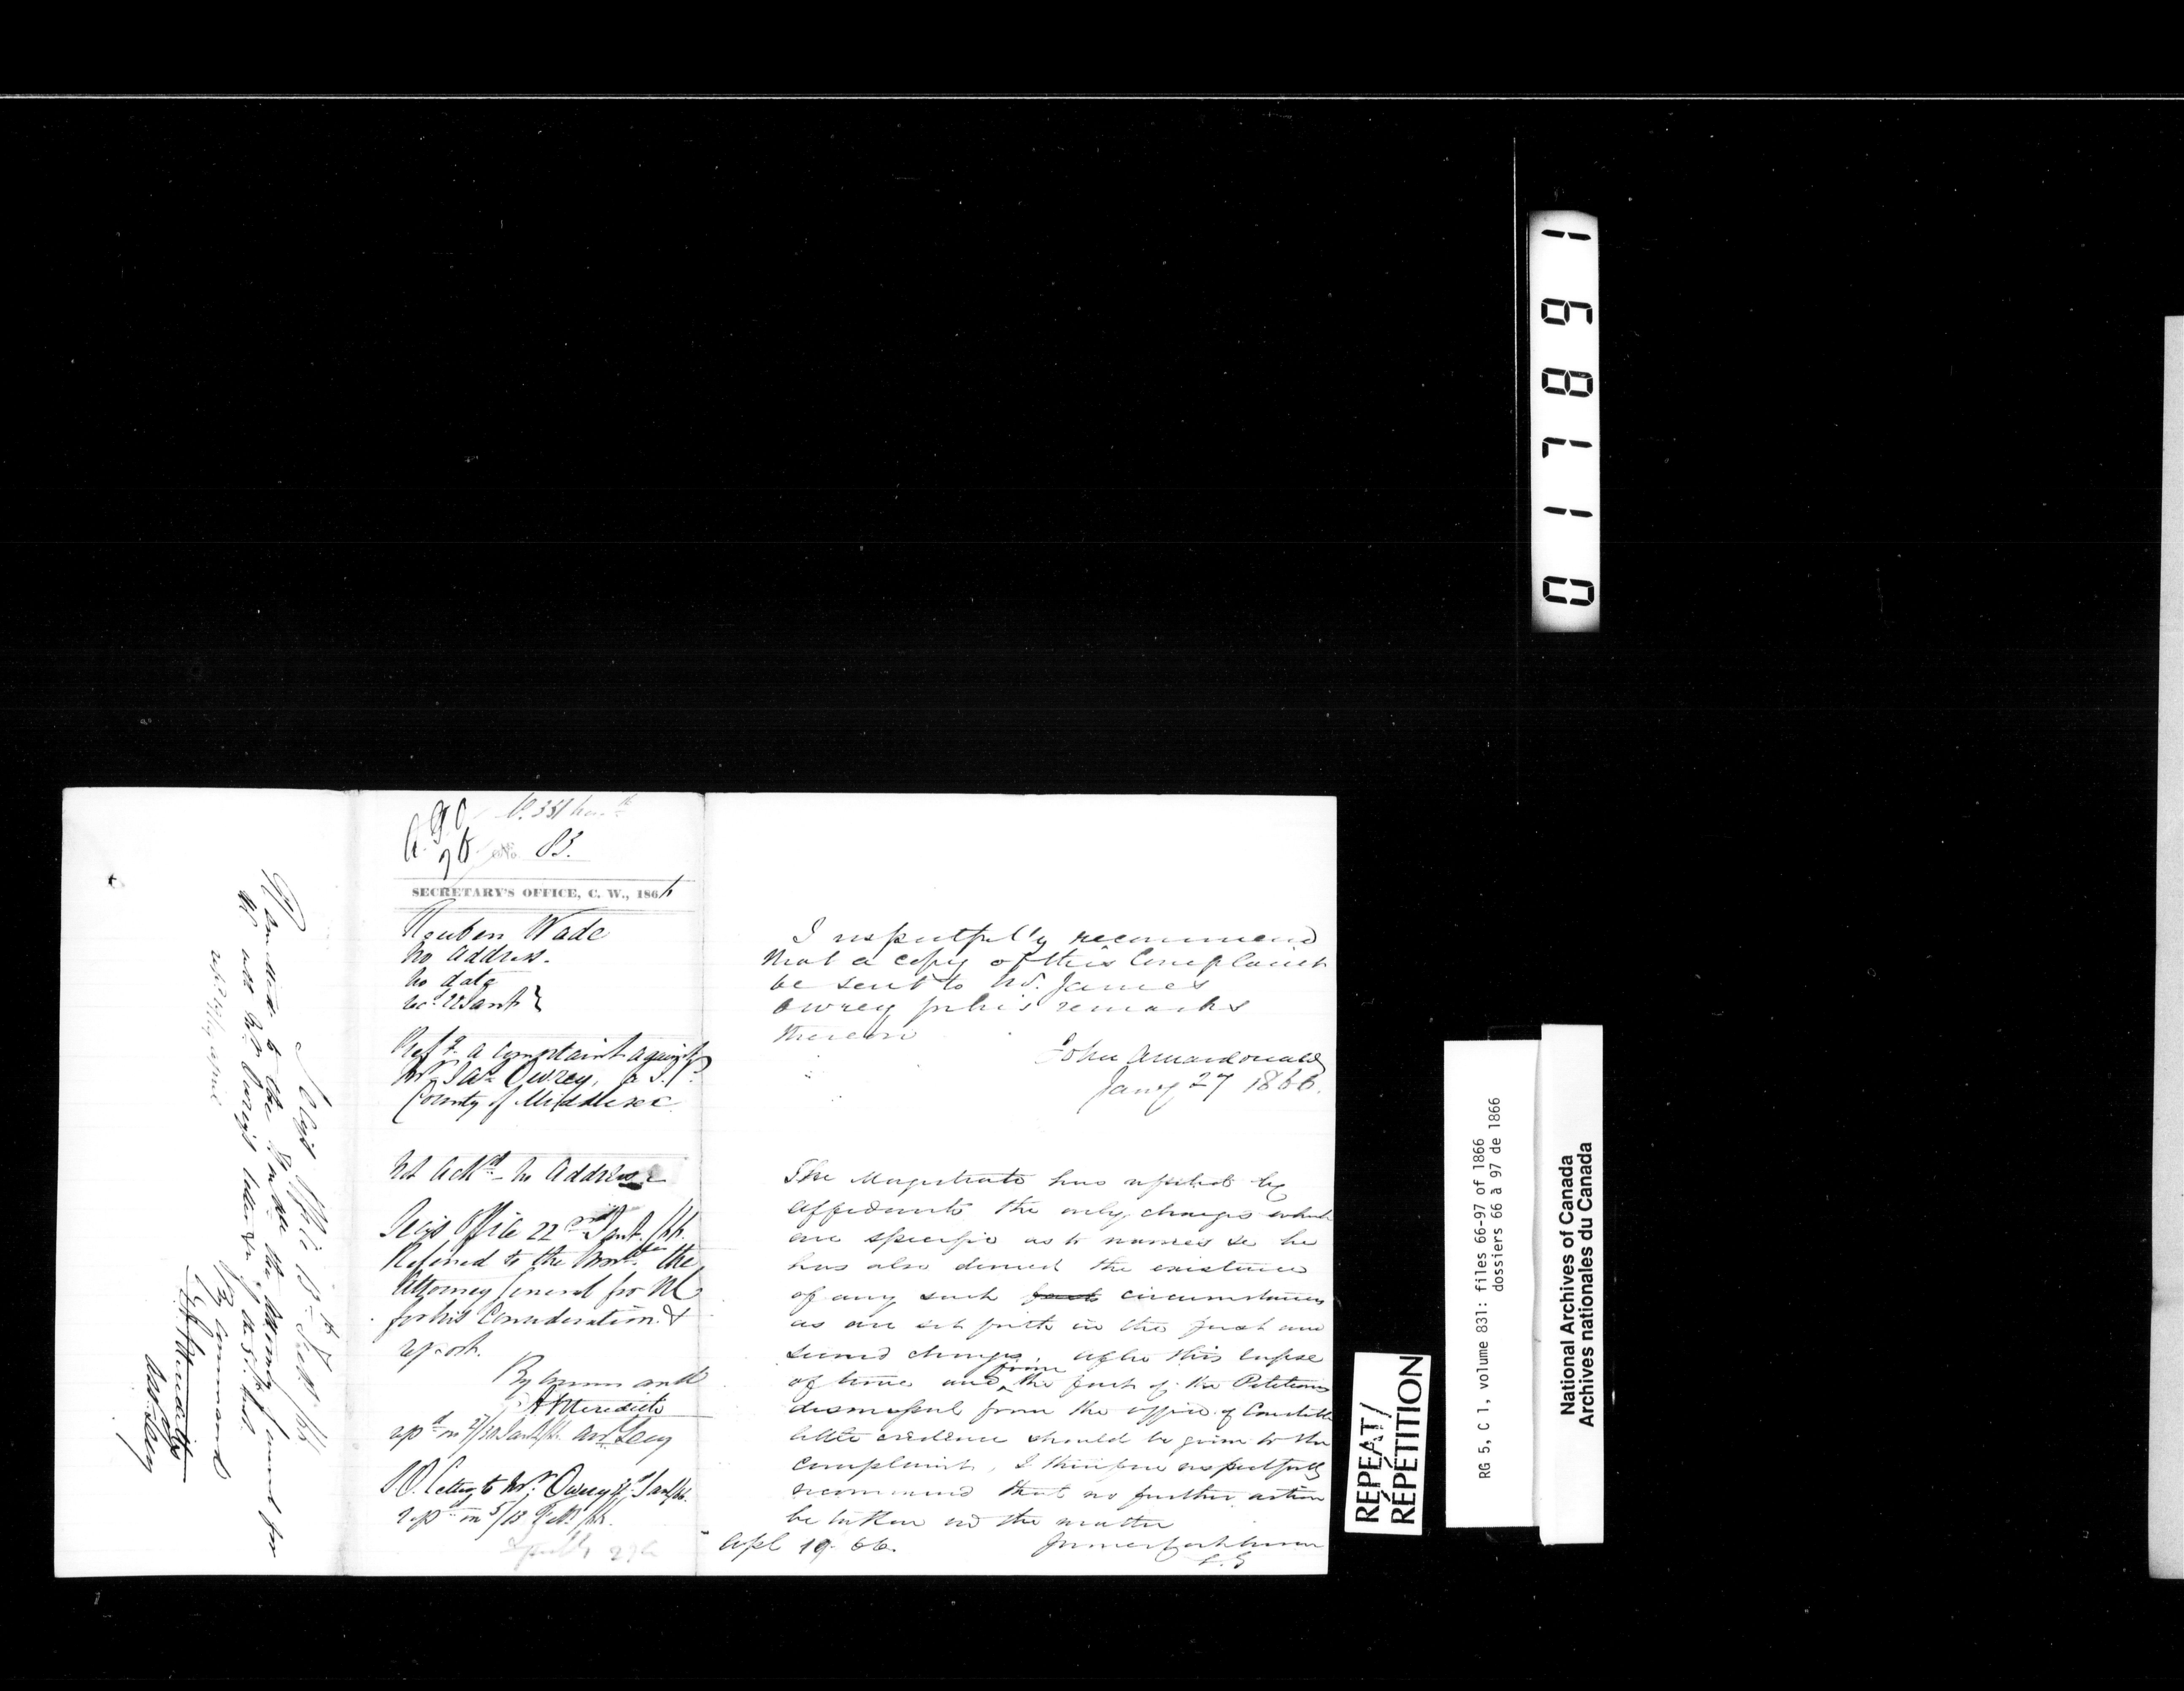 No. 83.
SECRETARY'S OFFICE, C. W., 1866
Reuben Wade
No address.
No date
Rec. 22 Jany
Pref. a complaint against
Mr. Jas. Owrey, a J.P.
County of Middlesex
Not Ackd - No Address
Secy's Office 22nd Jany /66.
Referred to the Honble the
Attorney General for UC
for his Consideration &
report.
By Command
E A Meredith
Asst Secy
Letter to Mr. Owrey Jan/66.
I respectfully recommend
that a copy of this Complaint
be sent to Mr. James
Owrey for his remarks
thereon
John A Macdonald
Jany 27 1866.
The Magistrate has replied by
affidavits the only charges which
are specific as to names &c he
has also denied the existence
of any such fact circumstances
as are set forth in the first and
second charges. after this lapse
of time and from the fact of the Petitioners
dismissal from the office of Constable
little credence should be given to the
complaint, I therefore respectfully
recommend that no further action
be taken in the matter
Apl 19. 66. James Cockburn
S. G
Secy's Office 13th Feby /66
Transmitted to the Honble the Attorney General for
UC with Mr. Owrey's letter of the 5th Inst.
By Command
E A Meredith
Asst Secy
REPEAT/
RÉPÉTITION
RG 5, C 1, volume 831: files 66-97 of 1866
dossiers 66 à 97 de 1866
National Archives of Canada
Archives nationales du Canada
017891